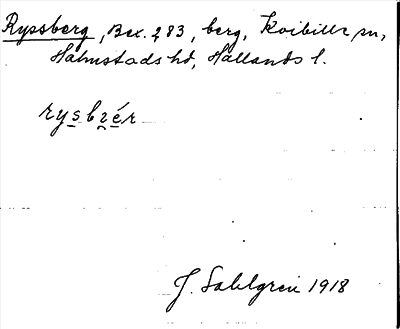 Ryssberg, Bex. 283, berg, Kvibille sn,
Halmstads hd, Hallands l.
rysbzér
J. Sahlgren 1918